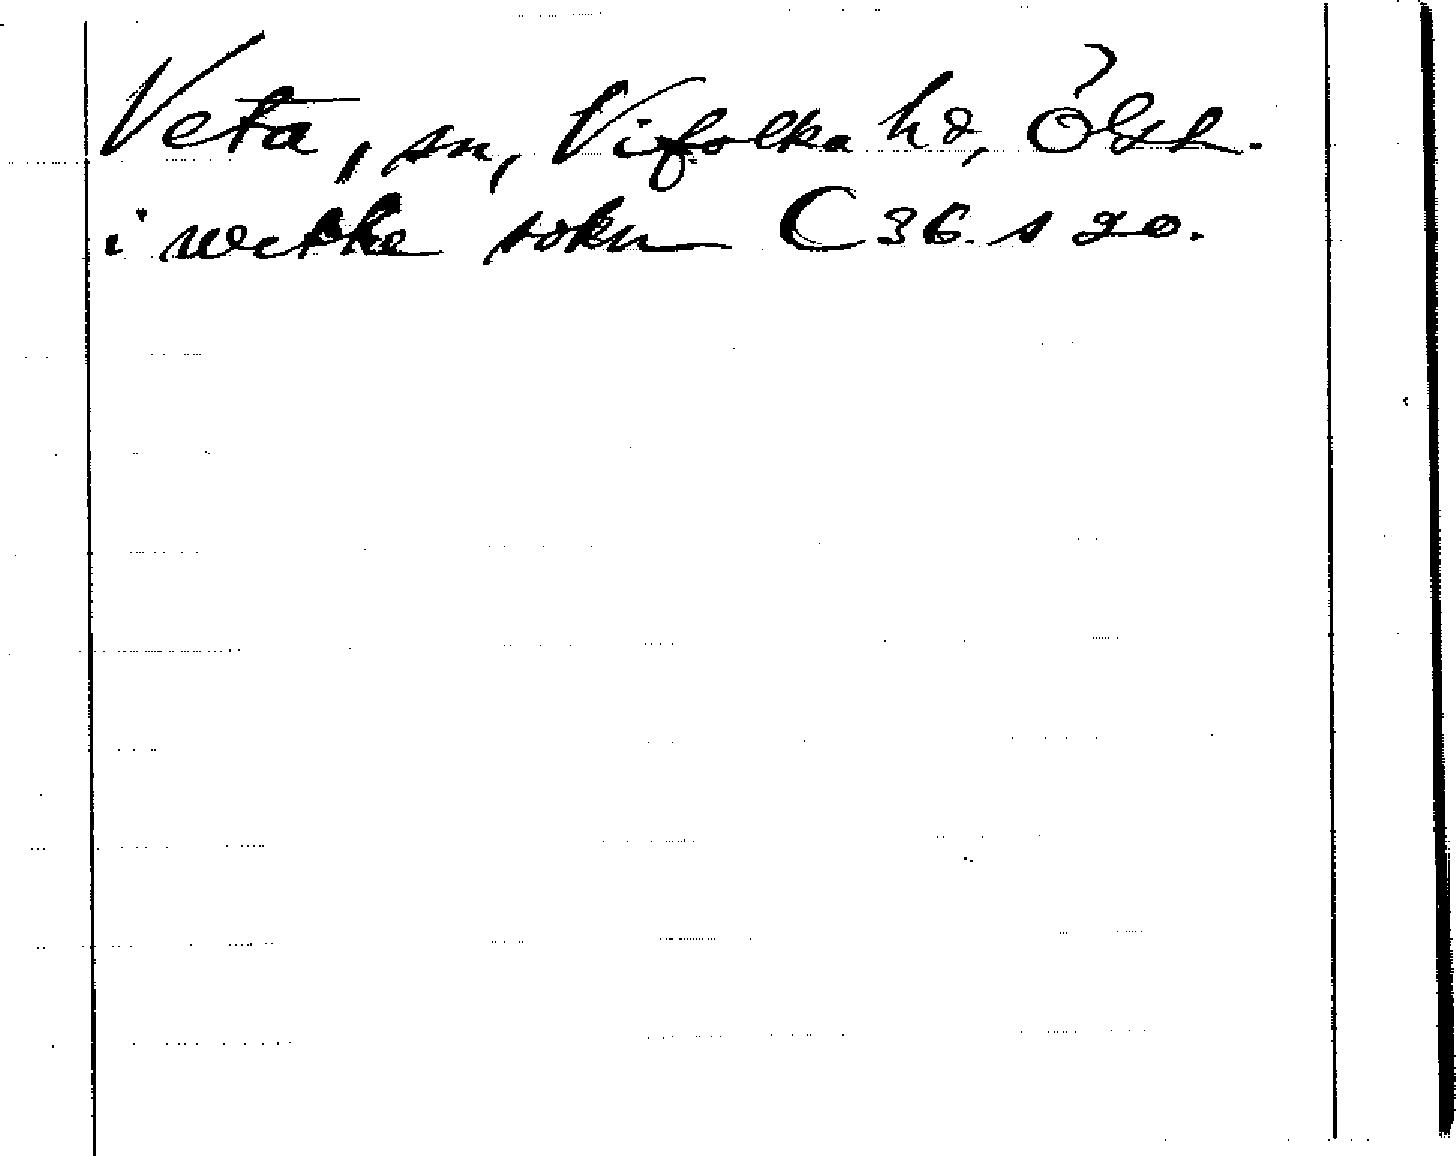 Veta, sn, Vifolka hd, Ögtl.
i wetke sokn C 36 s 20.